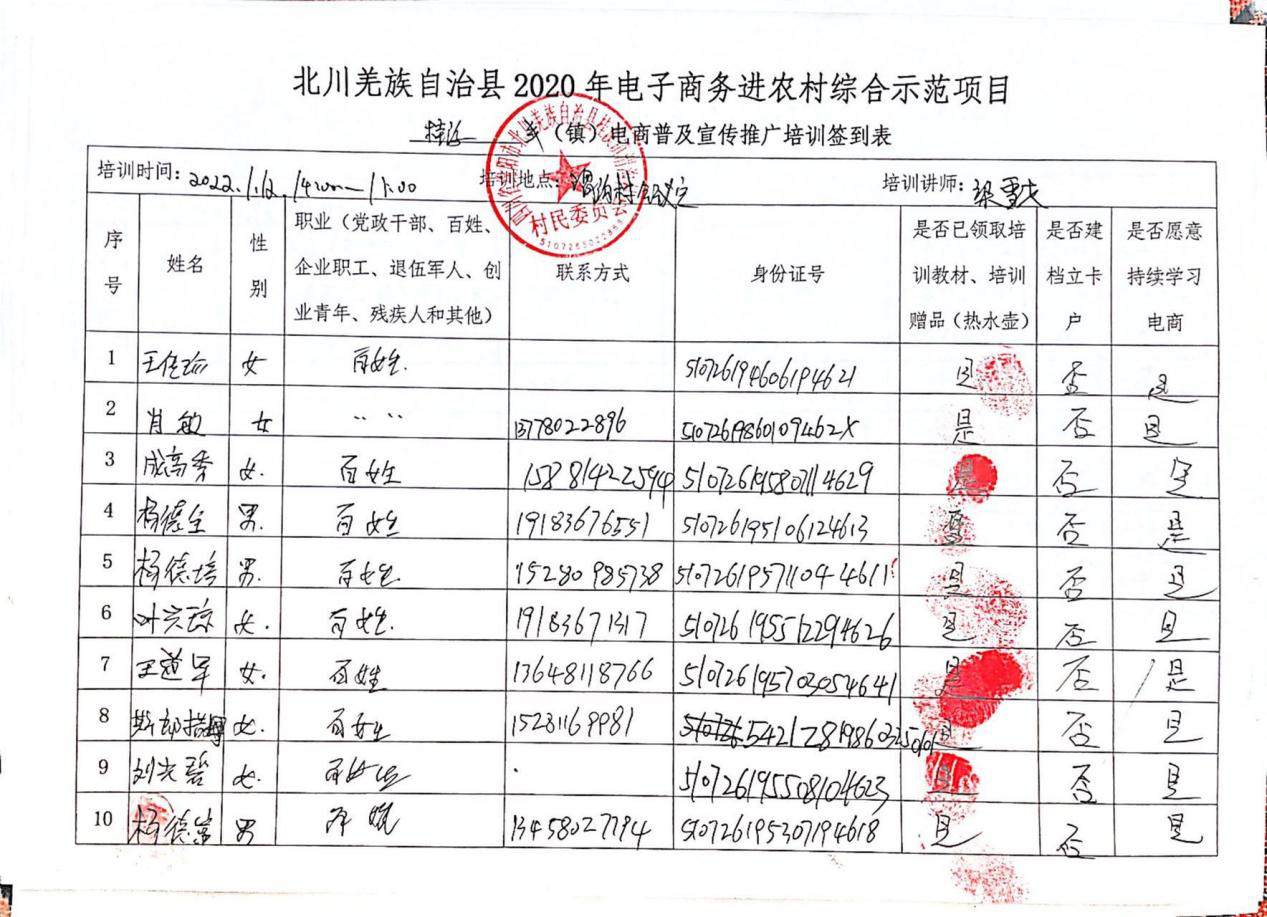 北川羌族自治县 2020 年电子商务进农村综合示范项目
（镇）电商普及宣传推广培训签到表
培训时间：2022.1.12. 14:00—17:00 培训地点： 培训讲师：
序号 姓名 性别 职业（党政干部、百姓、企业职工、退伍军人、创业青年、残疾人和其他） 联系方式 身份证号 是否已领取培训教材、培训赠品（热水壶） 是否建档立卡户 是否愿意持续学习电商
村民委员会
1 女 百姓. 510726194606194621 是 否 是
2 肖敏 女 〃 〃 13778022896 51072619860109462X 是 否 是
3 成高秀 女. 百姓 15881422594 510726195807114629 是 否 是
4 杨德全 男. 百姓 19183676551 510726195106124613 是 否 是
5 杨德培 男. 百姓 15280985738 510726195711044611 是 否 是
6 叶兴琼 女. 百姓. 19183671317 510726195512294626 是 否 是
7 王道军 女. 百姓 13648118766 510726195703054641 是 否 是
8 女. 百姓 15281169981 是 否 是
9 刘兴碧 女. 百姓 510726195508104623 是 否 是
10 男 13458027794 510726195307194618 是 否 是